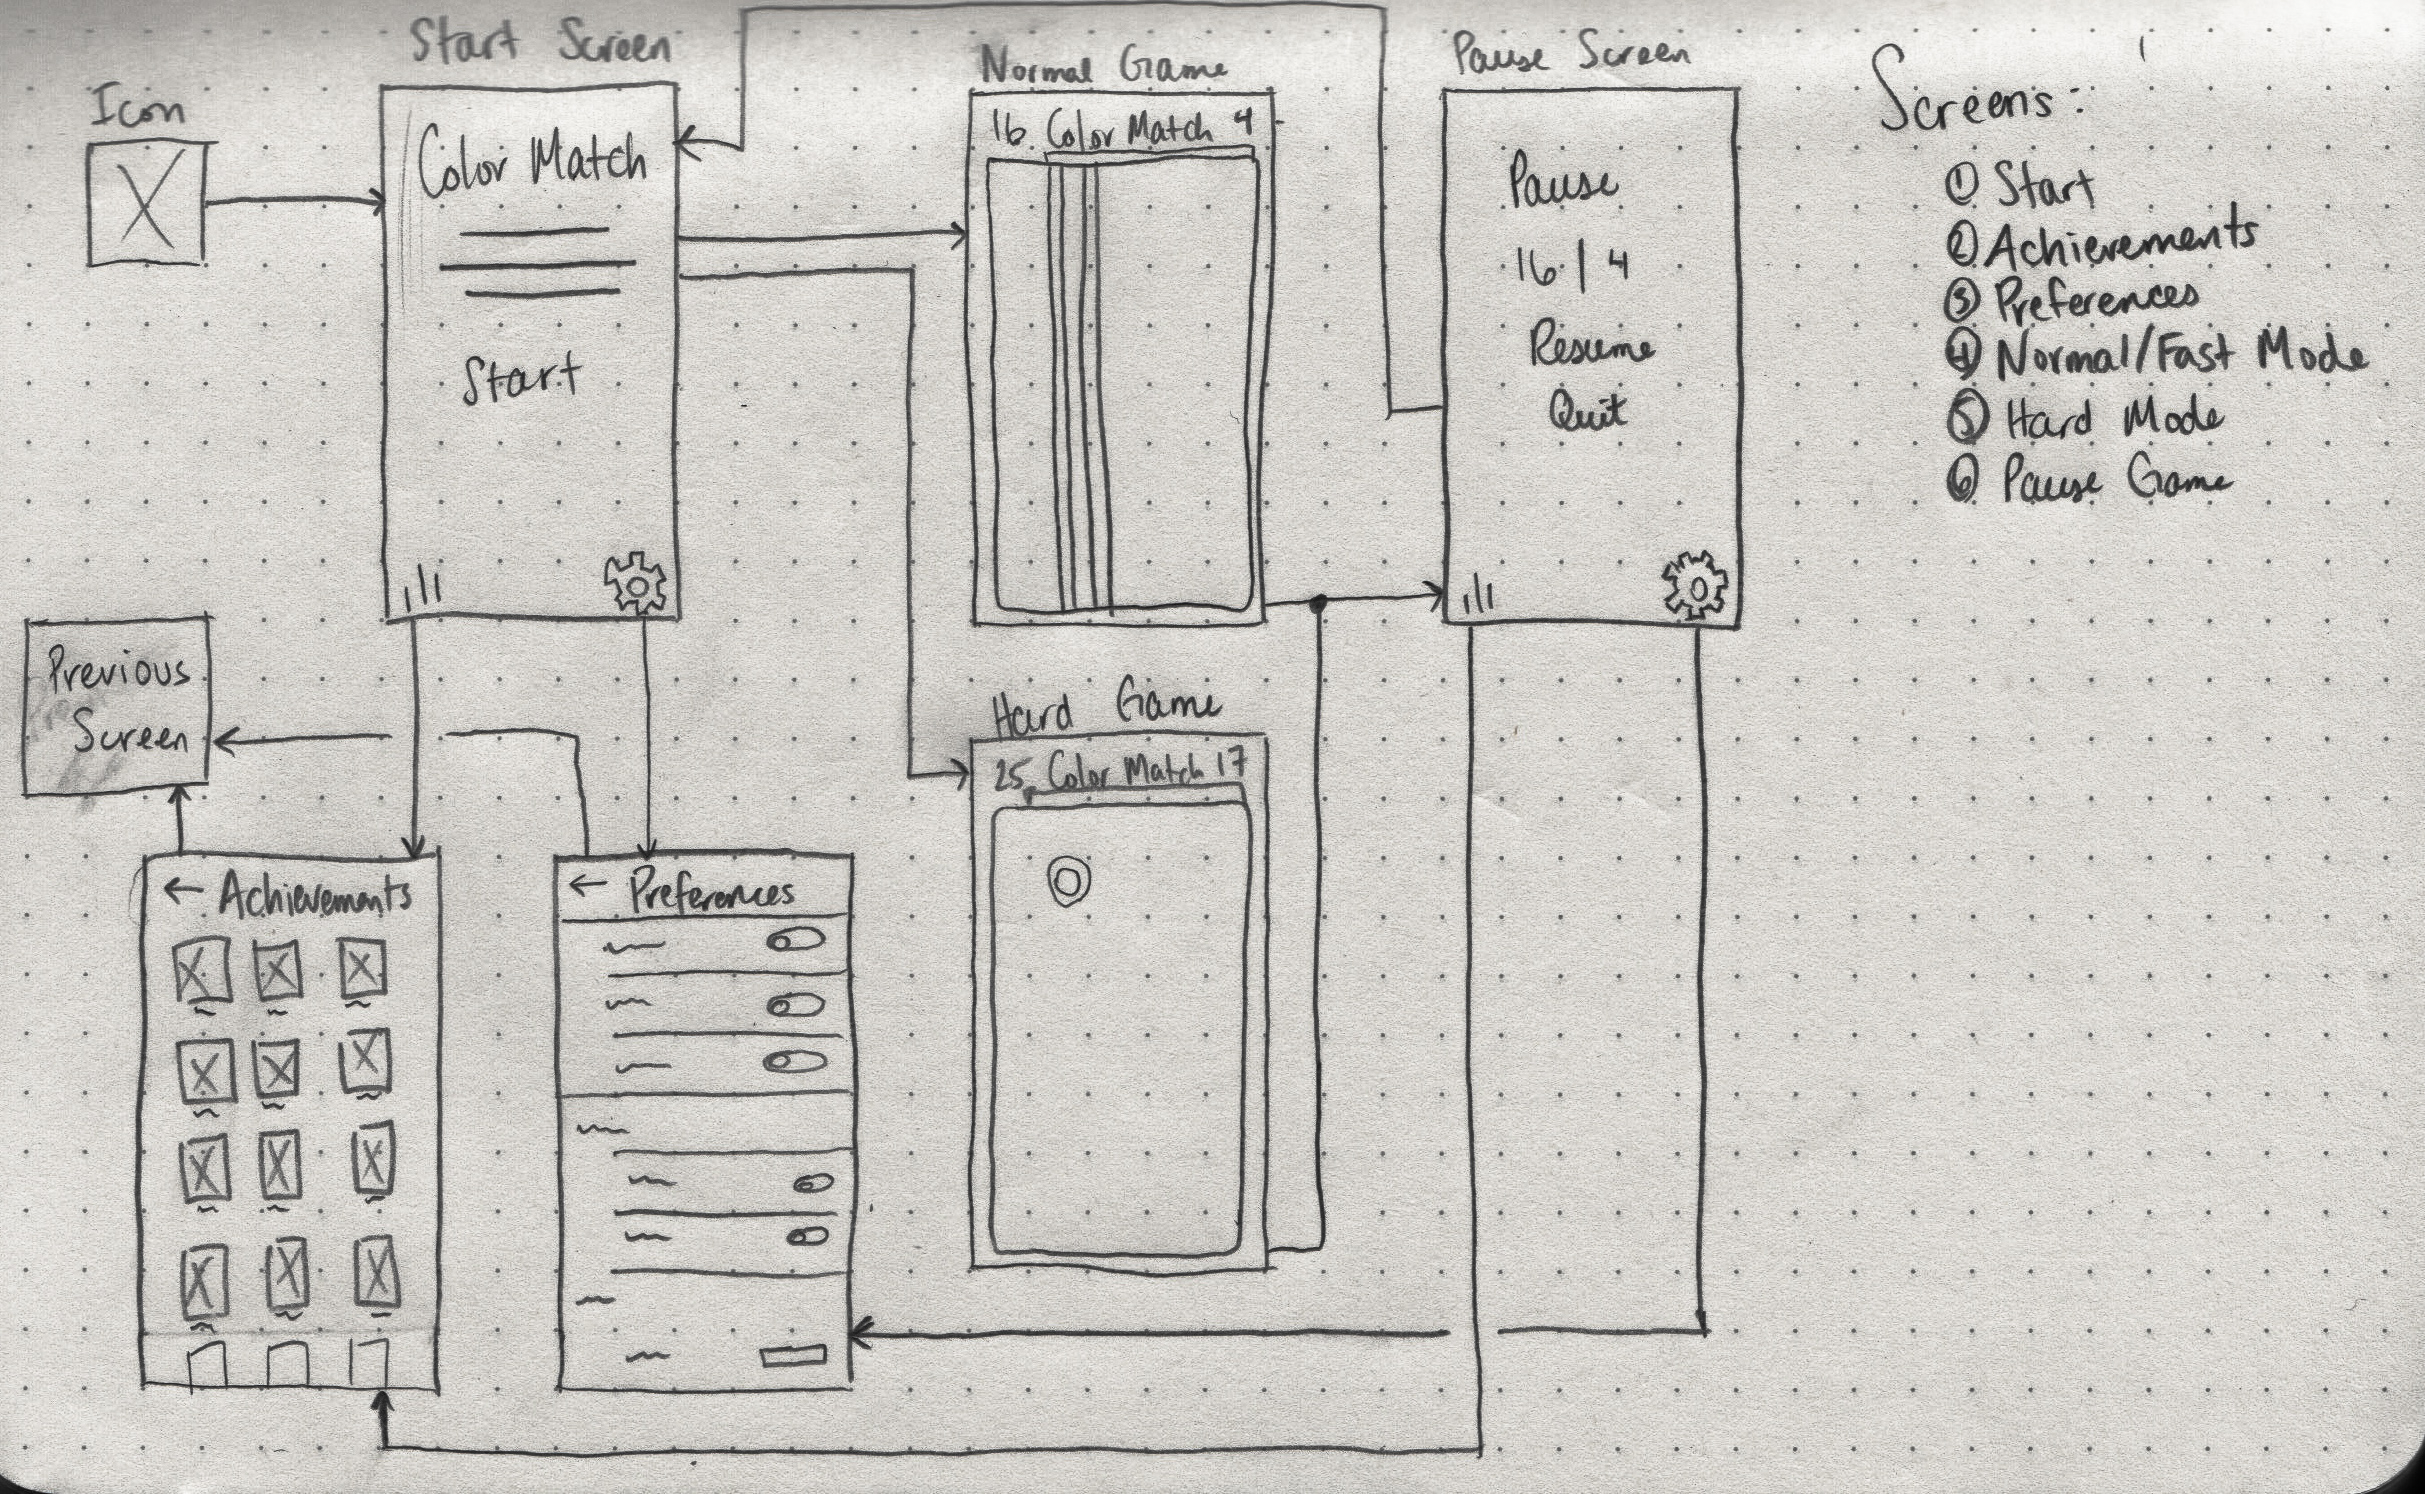 Icon
Start Screen
Color Match
Start
Normal Game
16 Color Match 4
Pause Screen
Pause
16 | 4
Resume
Quit
Screens:
① Start
② Achievements
③ Preferences
④ Normal/Fast Mode
⑤ Hard Mode
⑥ Pause Game
Previous
Screen
Hard Game
25 Color Match 17
← Achievements
← Preferences